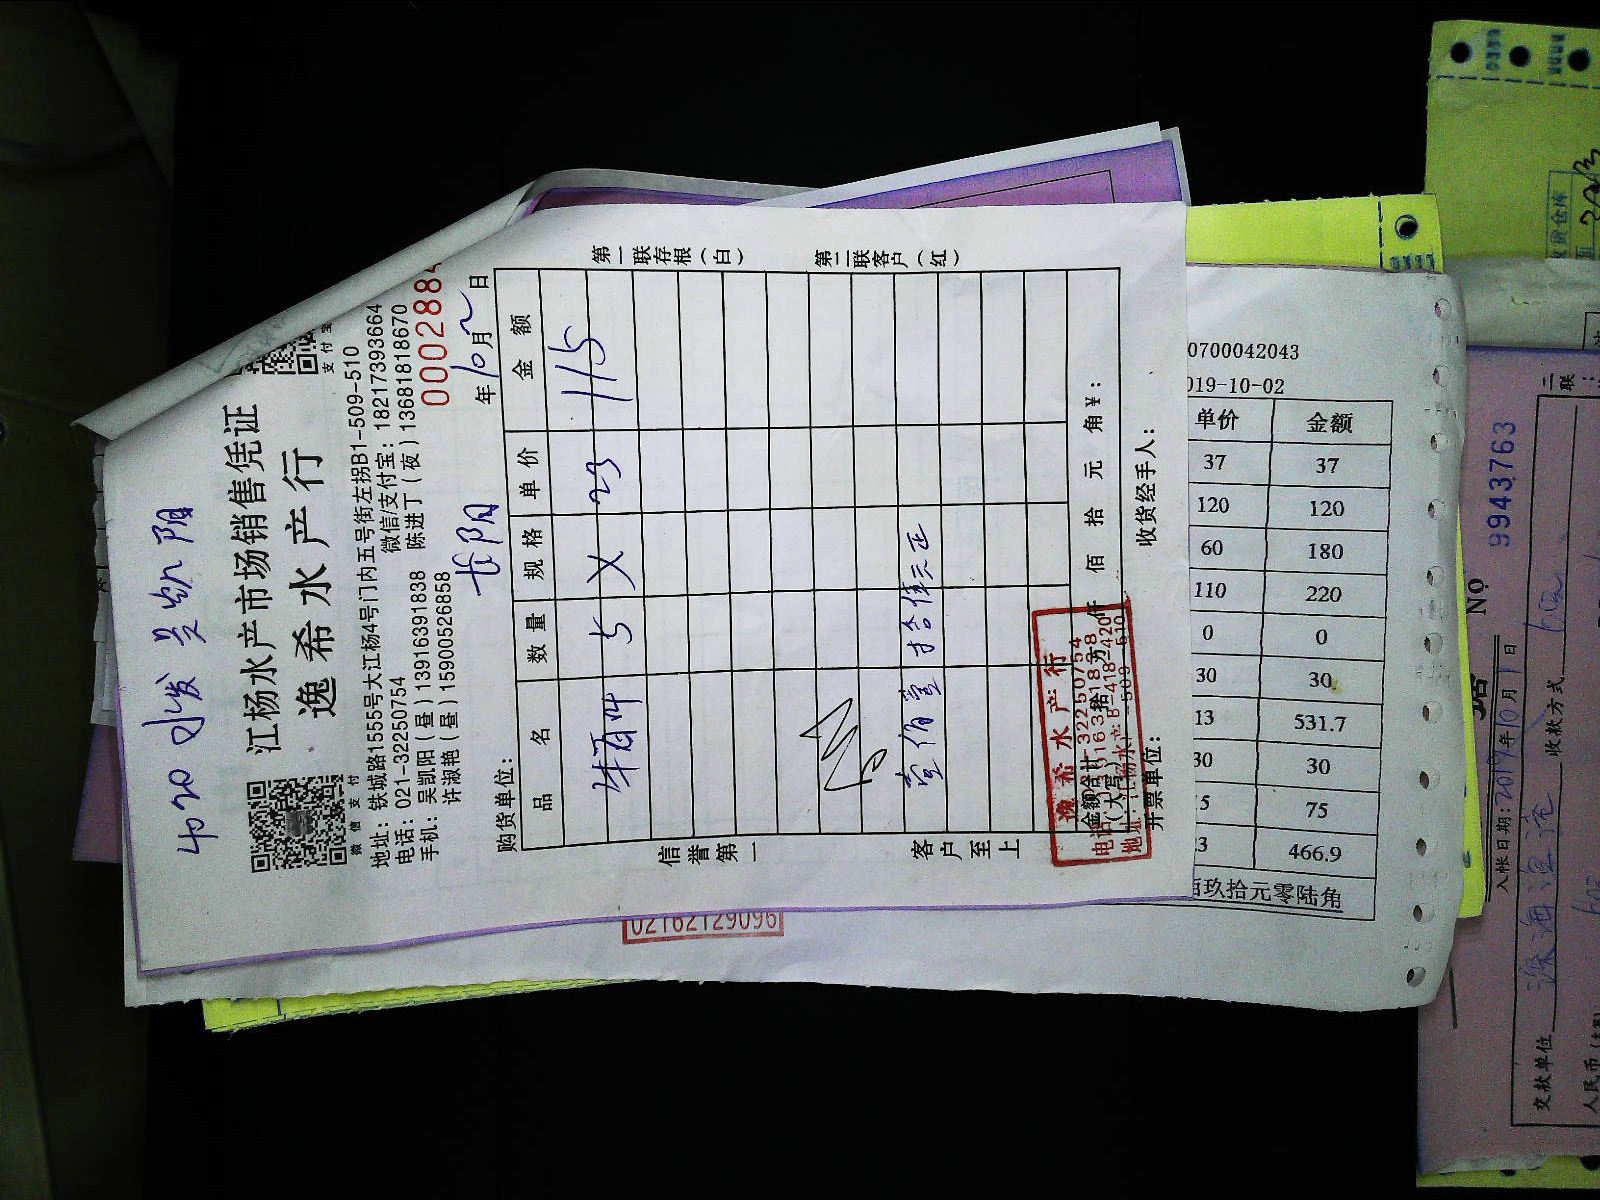 4020 水发 吴凯阳
江杨水产市场销售凭证
逸希水产行
微信支付
支付宝
地址：铁城路1555号大江杨4号门内五号街左拐B1-509-510
电话：021-32250754 微信/支付宝：18217393664
手机：吴凯阳（昼）13916391838 陈进丁（夜）13681818670
许淑艳（昼）15900526858
0002884
购货单位： 长阳 年10月2日
品名 数量 规格 单价 金额
5 X 23 115
壹佰壹拾伍元正
金额合计（大写） 拾 万 仟 佰 拾 元 角￥：
开票单位： 收货经手人：
第一联存根（白）
第二联客户（红）
信誉第一
客户至上
逸希水产行
02162129096
0700042043
019-10-02
单价 金额
37 37
120 120
60 180
110 220
0 0
30 30
13 531.7
30 30
5 75
3 466.9
佰玖拾元零陆角
No 9943763
入帐日期：2019年10月1日
交款单位
收款方式
人民币